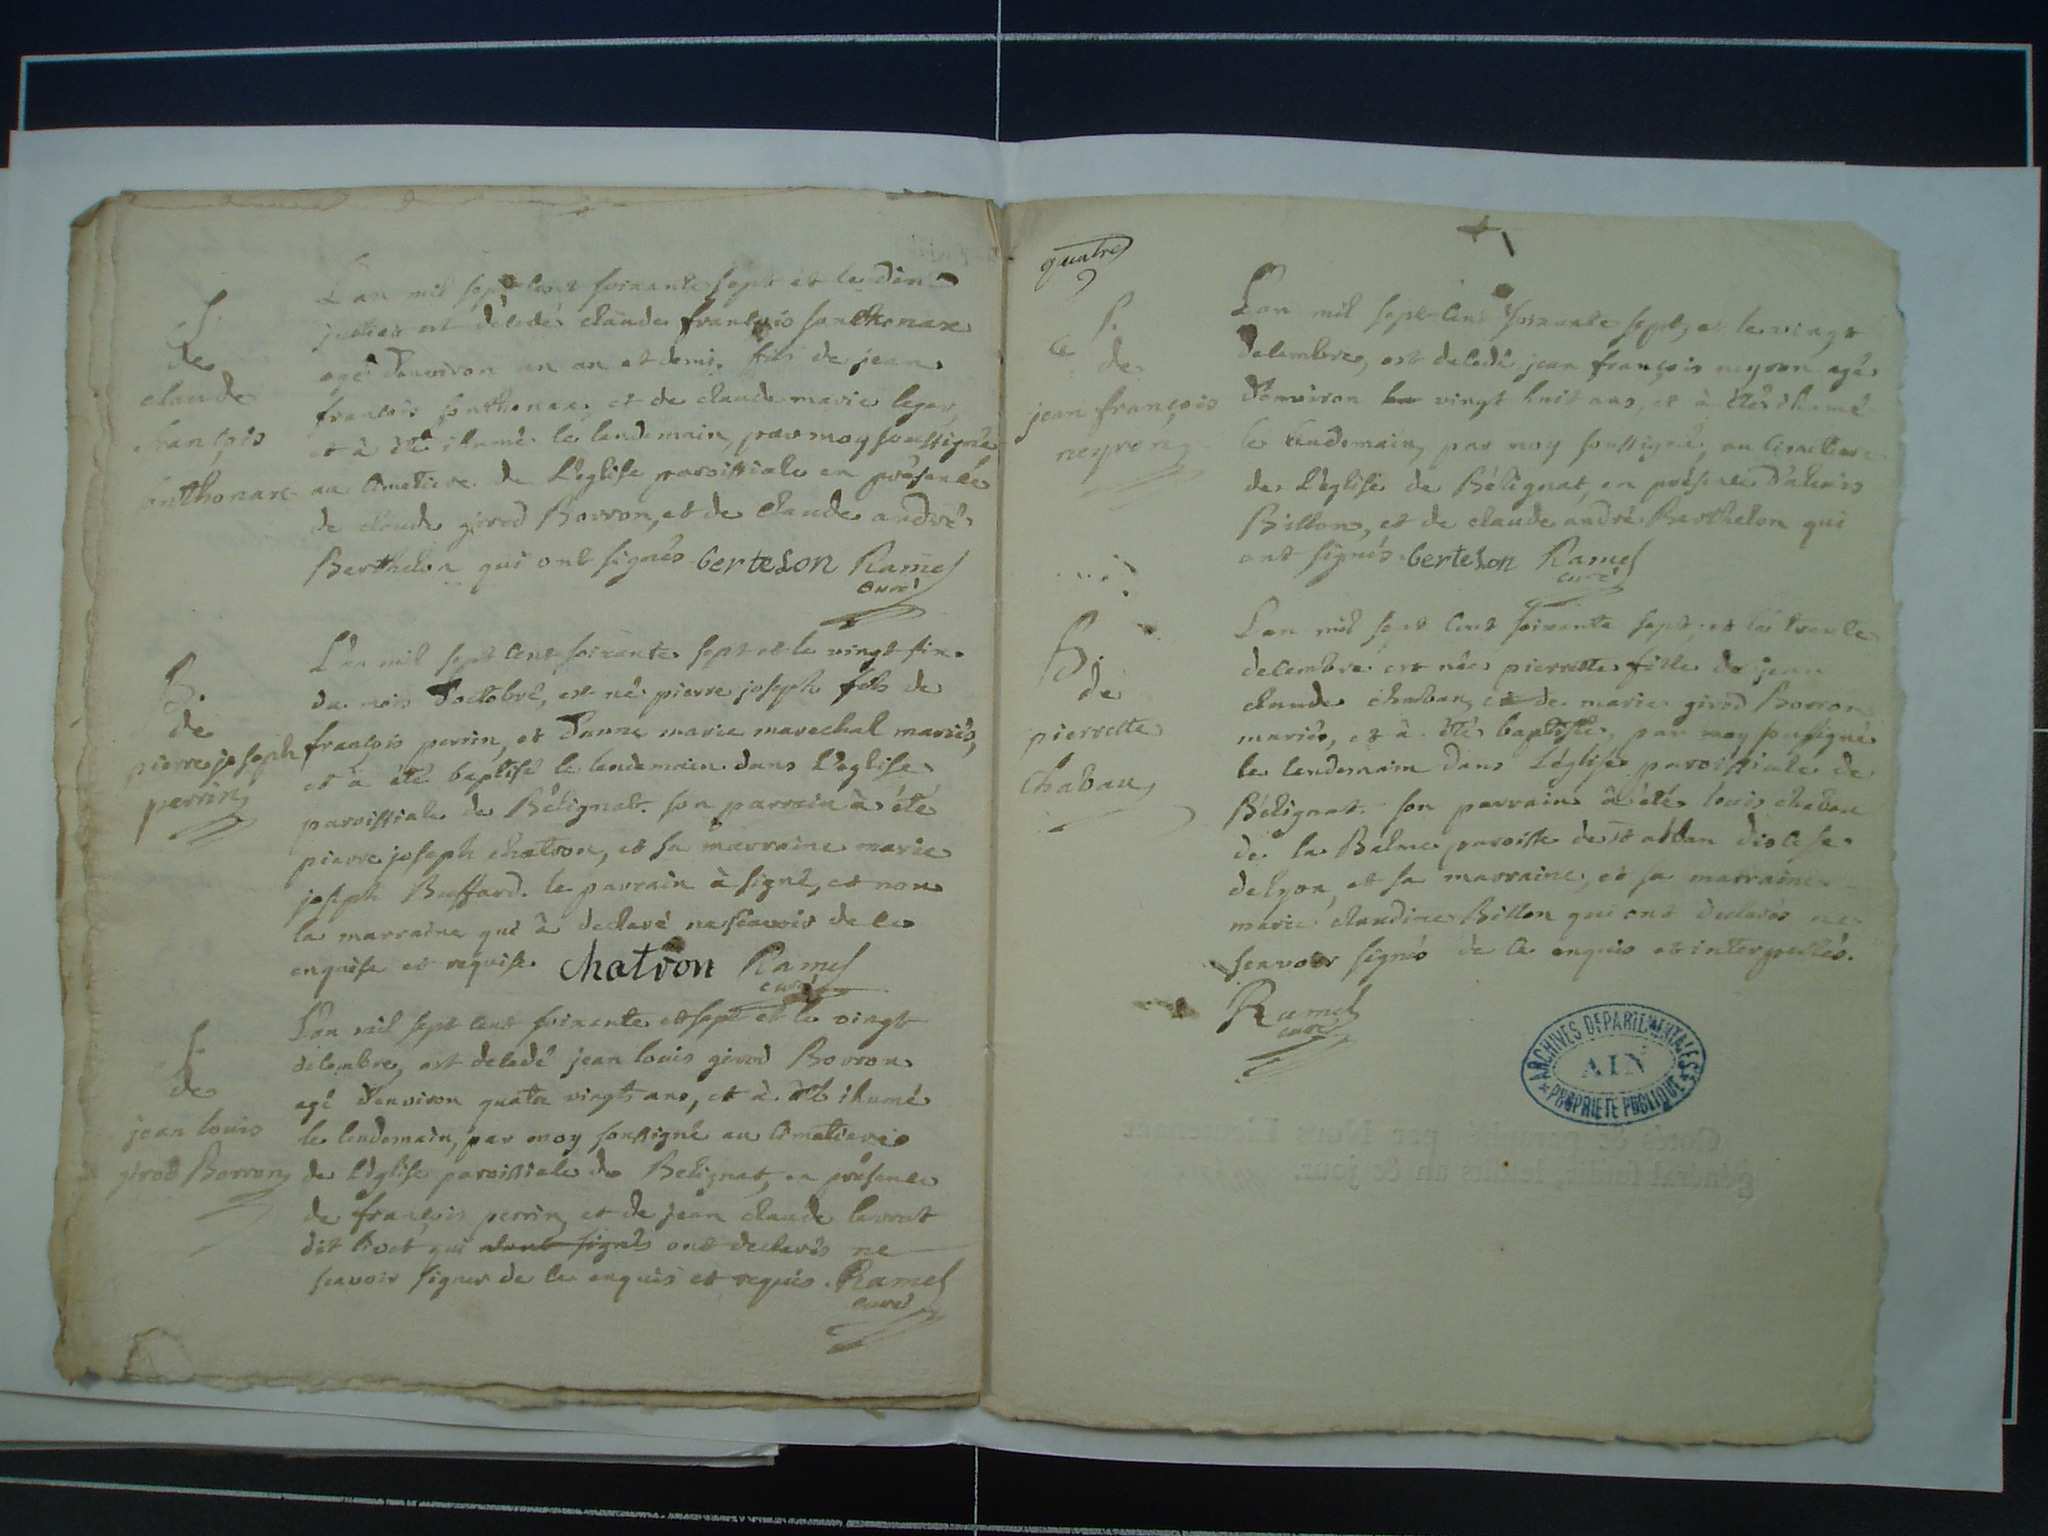 S.
de
claude
françois
sonthonax
L'an mil sept cent soixante sept et le dix
juillet est décédé claude françois sonthonax
agé d'environ un an et demi, fils de jean
françois sonthonax, et de claude marie leger,
et à été ihumé le lendemain, par moy soussigné
au cimetiere de L'église paroissiale en présence
de claude girod Borron, et de Claude andré
Berthelon qui ont signés. bertelon Ramel
curé
B.
de
pierre joseph
perrin
L'an mil sept cent soixante sept et le vingt six
du mois d'octobre, est né pierre joseph fils de
françois perrin, et d'anne marie marechal mariés,
et à été baptisé le lendemain dans L'eglise
paroissiale de Bélignat. son parrain à été
pierre joseph chatron, et sa marraine marie
joseph Buffard. le parrain à signé, et non
la marraine qui à declaré ne sçavoir de ce
enquise et requise. chatron Ramel
curé
S.
de
jean louis
girod Borron
L'an mil sept cent soixante et sept et le vingt
décembre, est decedé jean louis girod Borron
agé d'environ quatre vingts ans, et à été ihumé
le lendemain, par moy soussigné au cimetiere
de L'église paroissiale de Belignat, en présence
de françois perrin et de jean claude
dit qui ont signés ont declarés ne
scavoir signer de ce enquis et requis. Ramel
curé
quatre
S.
de
jean françois
neyron
L'an mil sept cent soixante sept, et le vingt
decembre, est decedé jean françois neyron agé
d'environ vingt huit ans, et à été ihumé
le lendemain, par moy soussigné, au cimetiere
de L'église de Bélignat, en présence d'alexis
Billon, et de claude andré Berthelon qui
ont signés. bertelon Ramel
curé
B.
de
pierrette
chaban
L'an mil sept cent soixante sept, et le trente
decembre est née pierrette fille de jean
claude chaban, et de marie girod Borron
mariés, et à été baptisée, par moy soussigné
le lendemain dans L'église paroissiale de
Bélignat. son parrain à été louis chaban
de la Balme paroisse de st alban diocese
de lyon, et sa marraine, et sa marraine
marie claudine Billon qui ont declarés ne
scavoir signés de ce enquis et interpellés.
Ramel
curé
ARCHIVES DEPARTEMENTALES
AIN
PROPRIETE PUBLIQUE